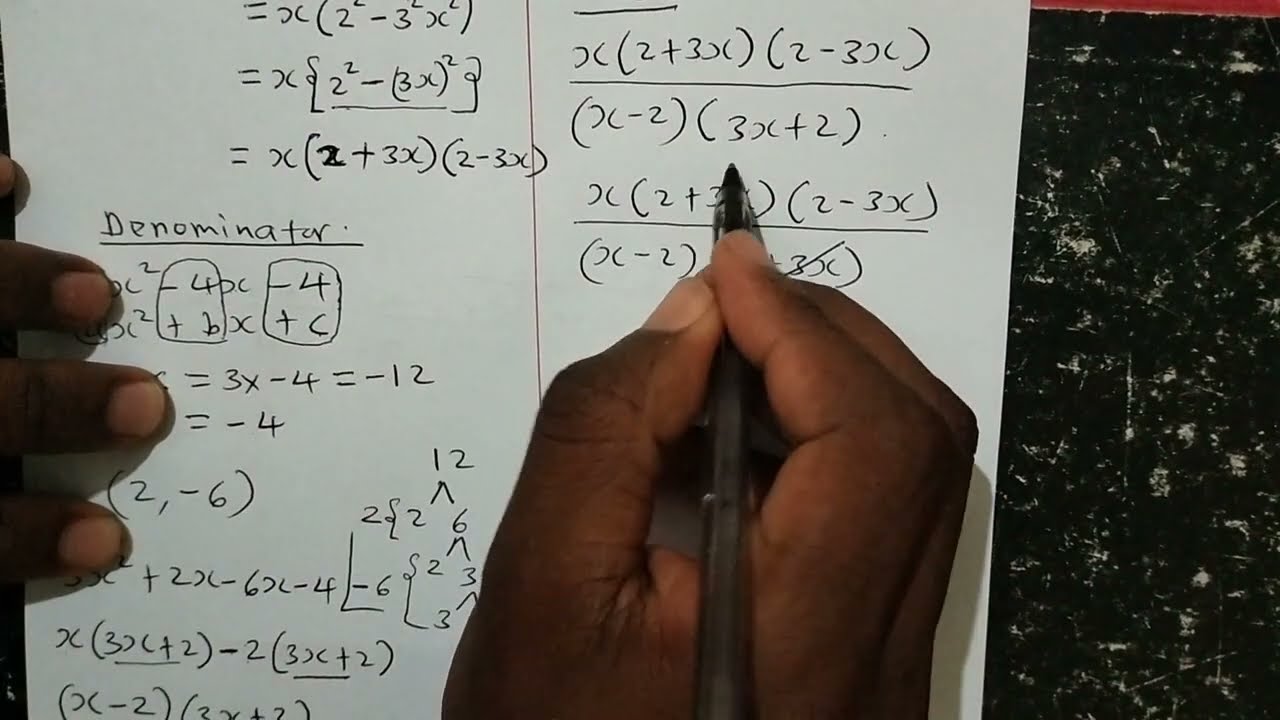 = x(2² - 3²x²)
= x{2² - (3x)²}
= x(2 + 3x)(2 - 3x)
Denominator.
x² - 4x - 4
x² + bx + c
= 3x - 4 = -12
= -4
(2, -6)
12
2{2 6
-6{2 3
3
x² + 2x - 6x - 4
x(3x+2) - 2(3x+2)
(x-2)(3x+2)
x(2+3x)(2-3x)
(x-2)(3x+2).
x(2+3x)(2-3x)
(x-2) +3x)